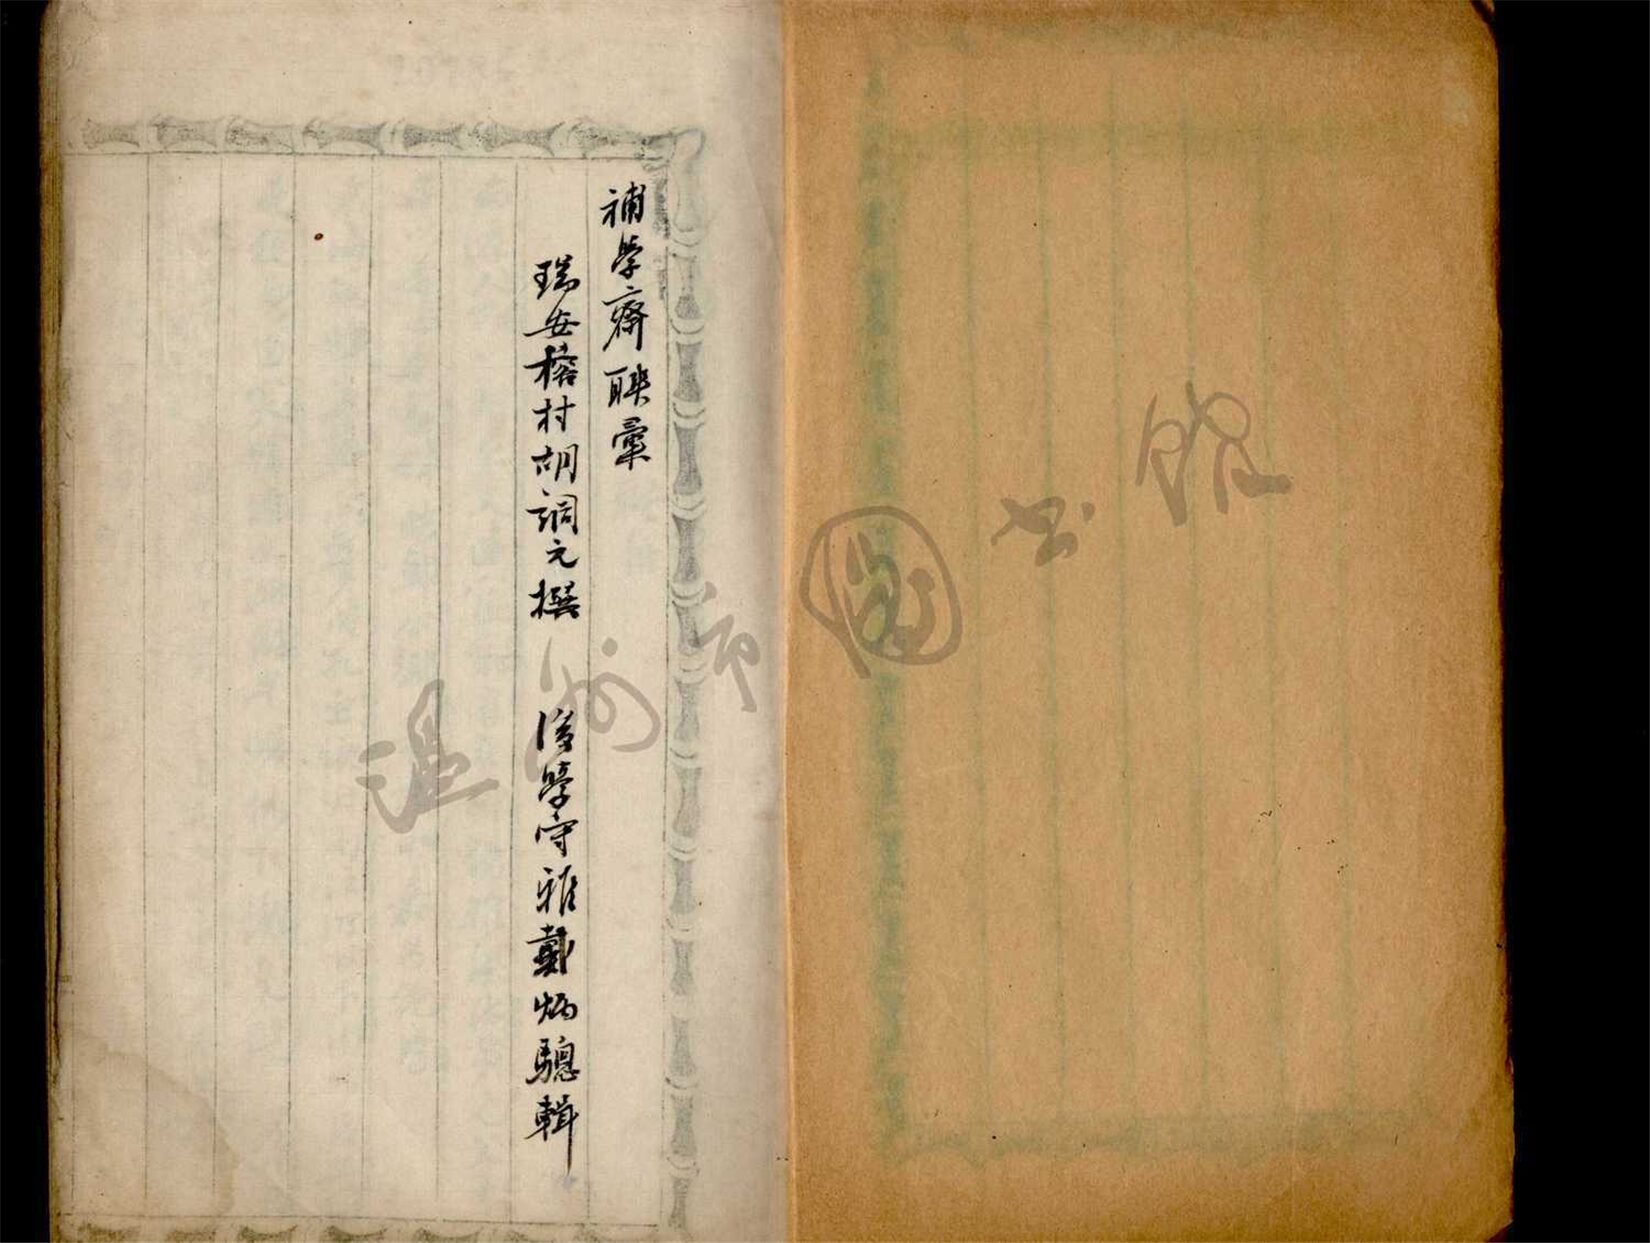 補學齋聯彙
瑞安榕村胡調元撰 後學守雅戴炳驄輯
温州市圖书館